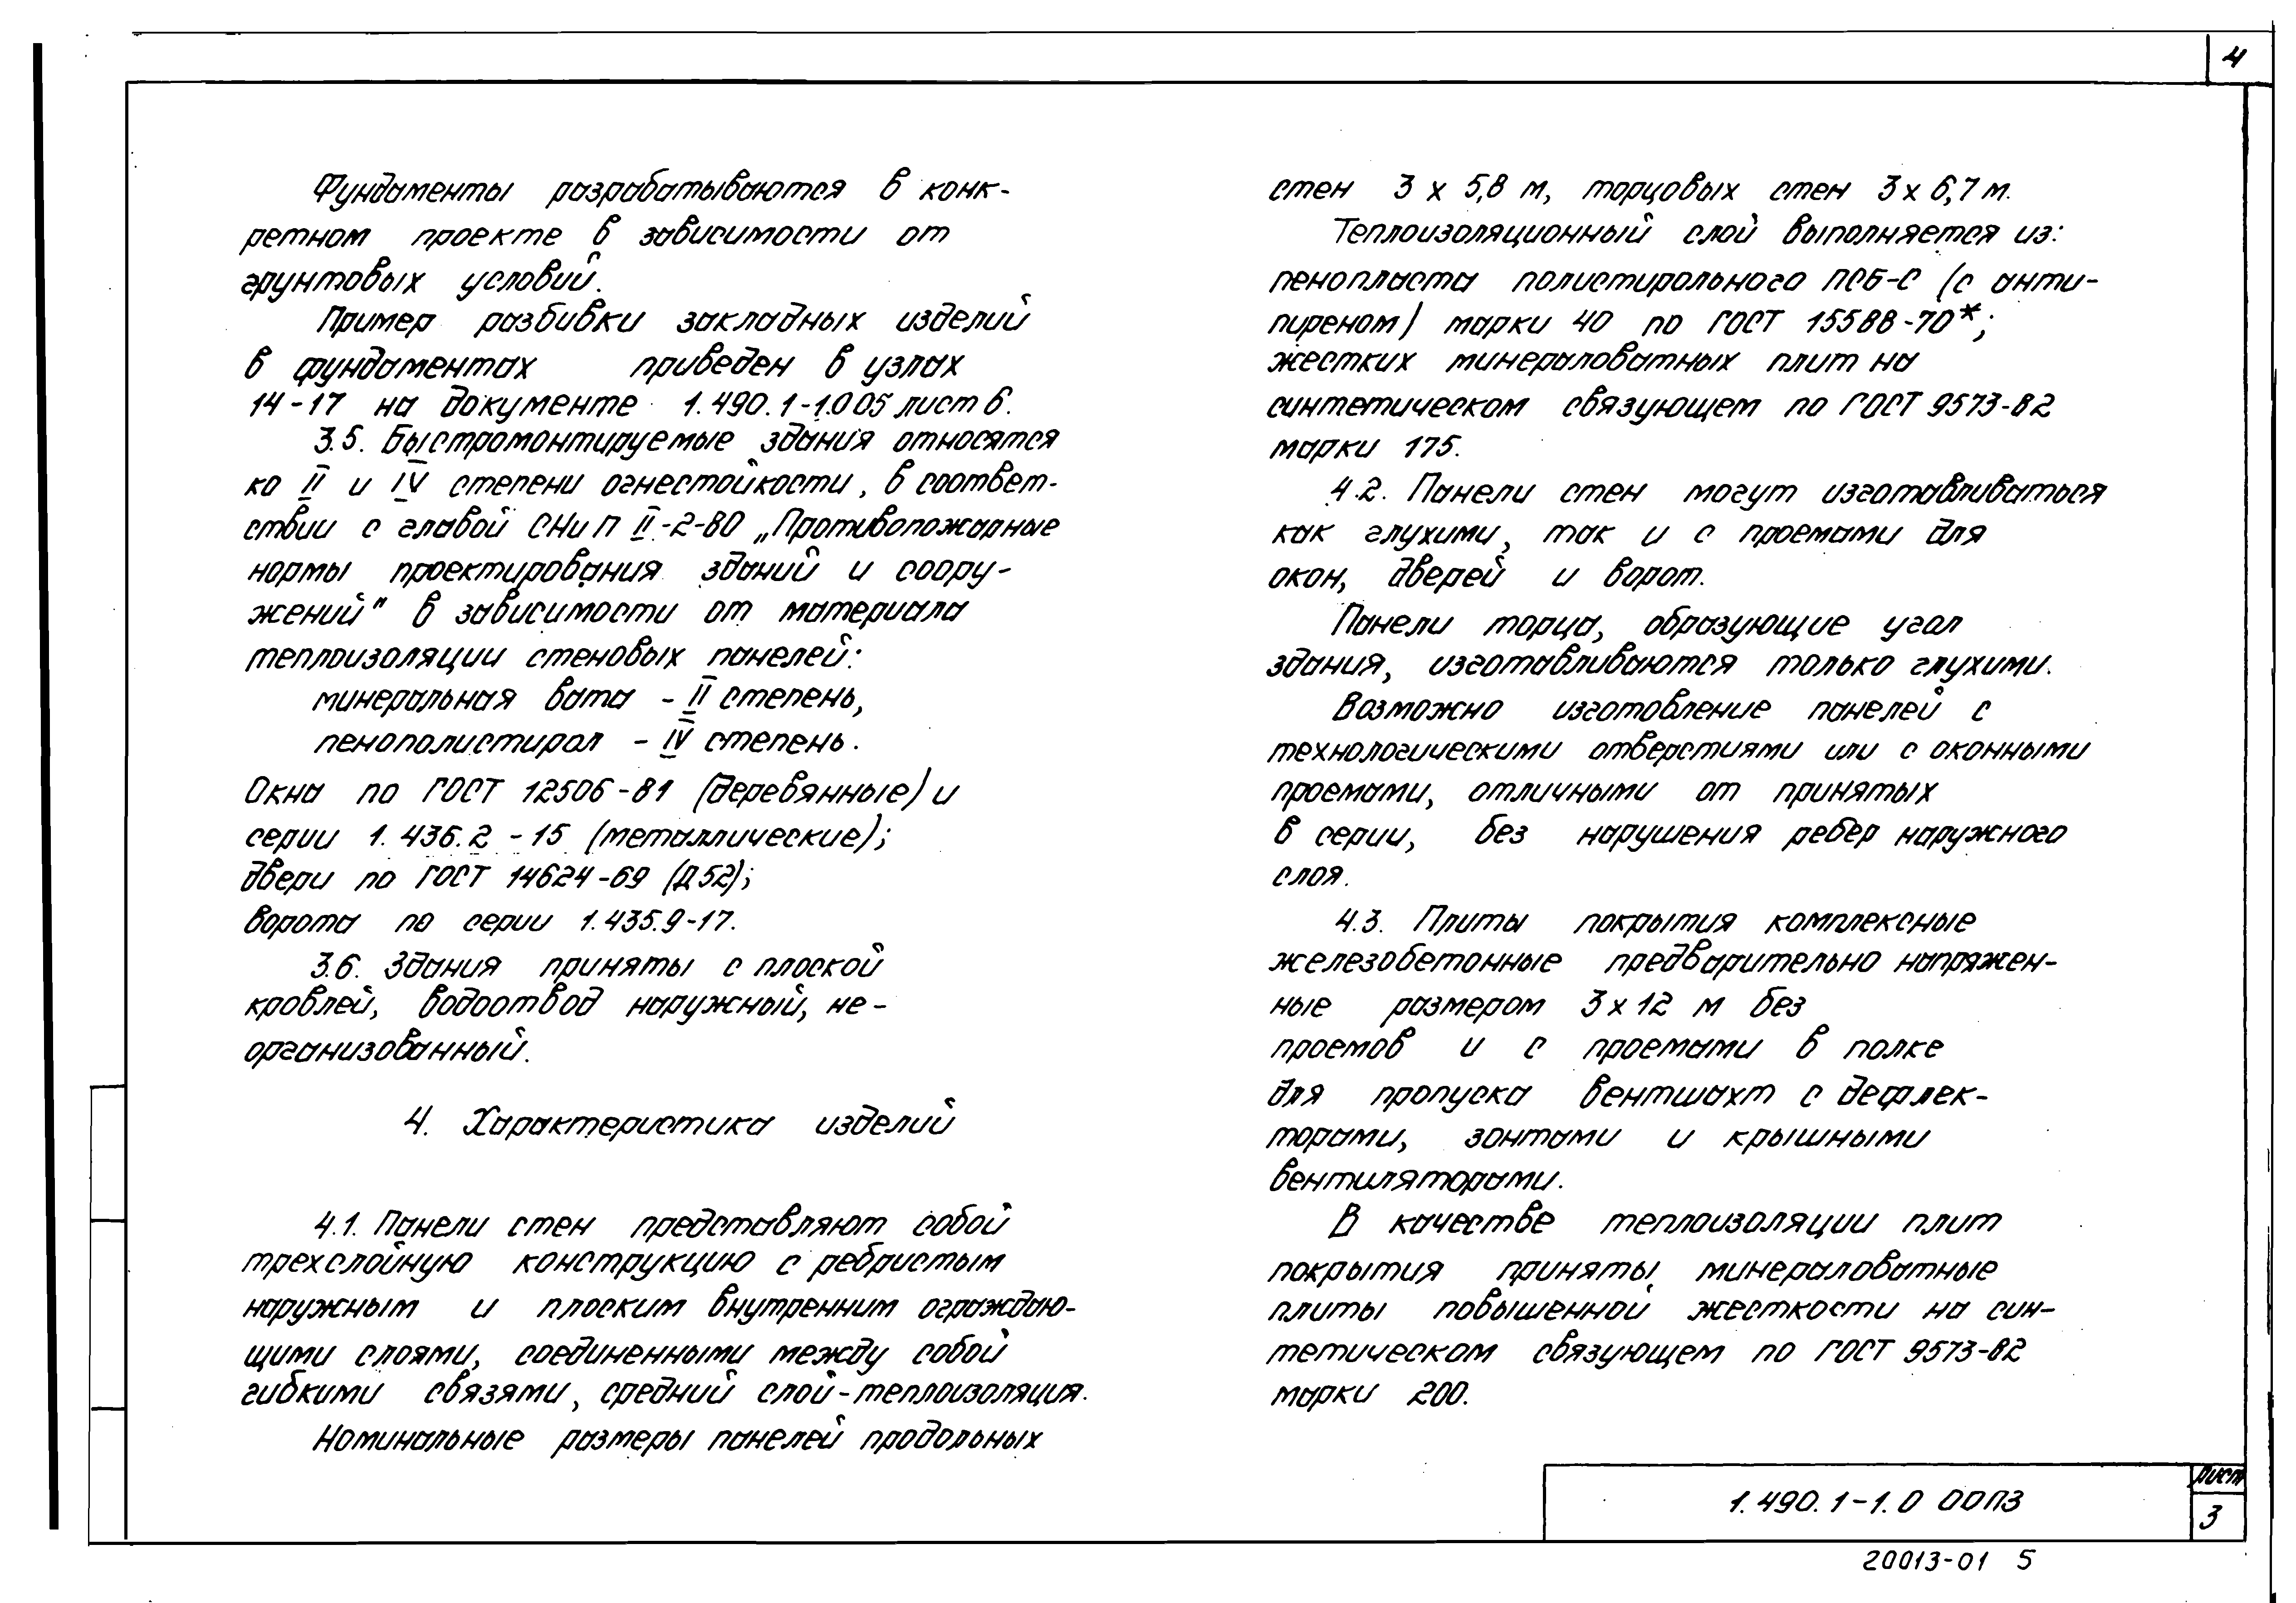 4
Фундаменты разрабатываются в конк-
ретном проекте в зависимости от
грунтовых условий.
Пример разбивки закладных изделий
в фундаментах приведен в узлах
14-17 на документе 1.490.1-1.005 лист 6.
3.5. Быстромонтируемые здания относятся
ко II и IV степени огнестойкости, в соответ-
ствии с главой СНиП II-2-80 „Противопожарные
нормы проектирования зданий и соору-
жений" в зависимости от материала
теплоизоляции стеновых панелей:
минеральная вата - II степень,
пенополистирол - IV степень.
Окна по ГОСТ 12506-81 (деревянные) и
серии 1.436.2-15 (металлические);
двери по ГОСТ 14624-69 (Д52);
ворота по серии 1.435.9-17.
3.6. Здания приняты с плоской
кровлей, водоотвод наружный, не-
организованный.
4. Характеристика изделий
4.1. Панели стен представляют собой
трехслойную конструкцию с ребристым
наружным и плоским внутренним ограждаю-
щими слоями, соединенными между собой
гибкими связями, средний слой-теплоизоляция.
Номинальные размеры панелей продольных
стен 3 х 5,8 м, торцовых стен 3 х 6,7 м.
Теплоизоляционный слой выполняется из:
пенопласта полистирольного ПСБ-С (с анти-
пиреном) марки 40 по ГОСТ 15588-70*;
жестких минераловатных плит на
синтетическом связующем по ГОСТ 9573-82
марки 175.
4.2. Панели стен могут изготавливаться
как глухими, так и с проемами для
окон, дверей и ворот.
Панели торца, образующие угол
здания, изготавливаются только глухими.
Возможно изготовление панелей с
технологическими отверстиями или с оконными
проемами, отличными от принятых
в серии, без нарушения ребер наружного
слоя.
4.3. Плиты покрытия комплексные
железобетонные предварительно напряжен-
ные размером 3 х 12 м без
проемов и с проемами в полке
для пропуска вентшахт с дефлек-
торами, зонтами и крышными
вентиляторами.
В качестве теплоизоляции плит
покрытия приняты минераловатные
плиты повышенной жесткости на син-
тетическом связующем по ГОСТ 9573-82
марки 200.
1.490.1-1.0 00ПЗ
Лист
3
20013-01 5